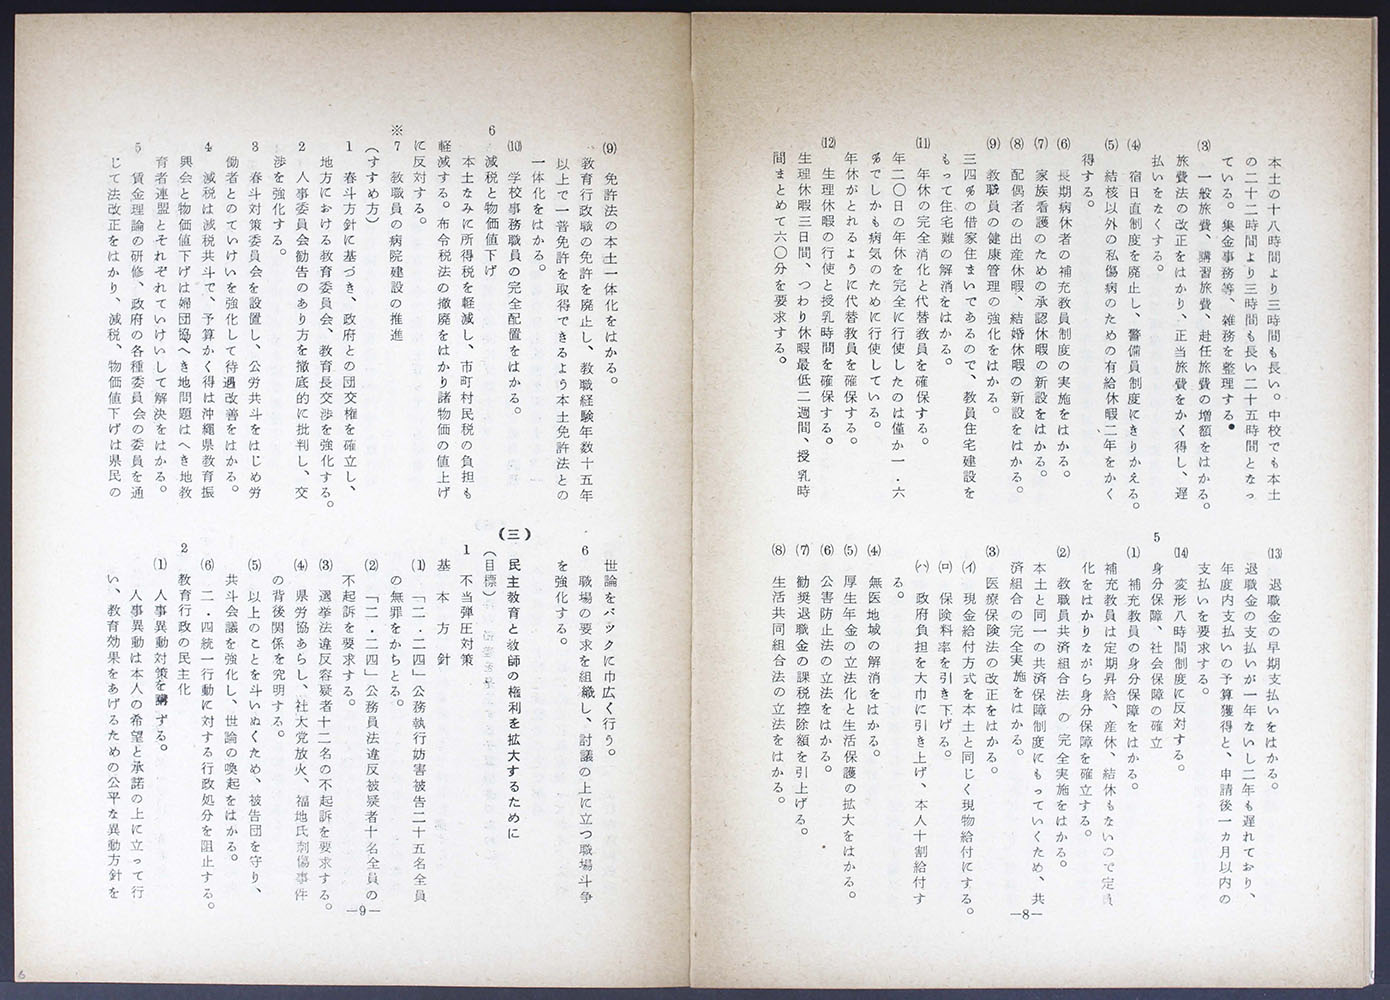 本土の十八時間より三時間も長い。中校でも本土
の二十二時間より三時間も長い二十五時間となっ
ている。集金事務等、雑務を整理する。
(3) 一般旅費、講習旅費、赴任旅費の増額をはかる。
旅費法の改正をはかり、正当旅費をかく得し、遅
払いをなくする。
(4) 宿日直制度を廃止し、警備員制度にきりかえる。
(5) 結核以外の私傷病のための有給休暇二年をかく
得する。
(6) 長期病休者の補充教員制度の実施をはかる。
(7) 家族看護のための承認休暇の新設をはかる。
(8) 配偶者の出産休暇、結婚休暇の新設をはかる。
(9) 教職員の健康管理の強化をはかる。
三四%の借家住まいであるので、教員住宅建設を
もって住宅難の解消をはかる。
(11) 年休の完全消化と代替教員を確保する。
年二〇日の年休を完全に行使したのは僅か一・六
%でしかも病気のために行使している。
年休がとれるように代替教員を確保する。
(12) 生理休暇の行使と授乳時間を確保する。
生理休暇三日間、つわり休暇最低二週間、授乳時
間まとめて六〇分を要求する。
(13) 退職金の早期支払いをはかる。
退職金の支払いが一年ないし二年も遅れており、
年度内支払いの予算獲得と、申請後一ヵ月以内の
支払いを要求する。
(14) 変形八時間制度に反対する。
5 身分保障、社会保障の確立
(1) 補充教員の身分保障をはかる。
補充教員は定期昇給、産休、結休もないので定員
化をはかりながら身分保障を確立する。
(2) 教職員共済組合法 の完全実施をはかる。
本土と同一の共済保障制度にもっていくため、共
済組合の完全実施をはかる。
(3) 医療保険法の改正をはかる。
(イ) 現金給付方式を本土と同じく現物給付にする。
(ロ) 保険料率を引き下げる。
(ハ) 政府負担を大巾に引き上げ、本人十割給付す
る。
(4) 無医地域の解消をはかる。
(5) 厚生年金の立法化と生活保護の拡大をはかる。
(6) 公害防止法の立法をはかる。
(7) 勧奨退職金の課税控除額を引上げる。
(8) 生活共同組合法の立法をはかる。
—8—
(9) 免許法の本土一体化をはかる。
教育行政職の免許を廃止し、教職経験年数十五年
以上で一普免許を取得できるよう本土免許法との
一体化をはかる。
(10) 学校事務職員の完全配置をはかる。
6 減税と物価値下げ
本土なみに所得税を軽減し、市町村民税の負担も
軽減する。布令税法の撤廃をはかり諸物価の値上げ
に反対する。
※7 教職員の病院建設の推進
(すすめ方)
1 春斗方針に基づき、政府との団交権を確立し、
地方における教育委員会、教育長交渉を強化する。
2 人事委員会勧告のあり方を撤底的に批判し、交
渉を強化する。
3 春斗対策委員会を設置し、公労共斗をはじめ労
働者とのていけいを強化して待遇改善をはかる。
4 減税は減税共斗で、予算かく得は沖縄県教育振
興会と物価値下げは婦団協へき地問題はへき地教
育者連盟とそれぞれていけいして解決をはかる。
5 賃金理論の研修、政府の各種委員会の委員を通
じて法改正をはかり、減税、物価値下げは県民の
世論をバックに巾広く行う。
6 職場の要求を組織し、討議の上に立つ職場斗争
を強化する。
(三) 民主教育と教師の権利を拡大するために
(目標)
1 不当弾圧対策
基本方針
(1) 「二・二四」公務執行妨害被告二十五名全員
の無罪をからとる。
(2) 「二・二四」公務員法違反被疑者十名全員の
不起訴を要求する。
(3) 選挙法違反容疑者十二名の不起訴を要求する。
(4) 県労協あらし、社大党放火、福地氏刺傷事件
の背後関係を究明する。
(5) 以上のことを斗いぬくため、被告団を守り、
共斗会議を強化し、世論の喚起をはかる。
(6) 二・四統一行動に対する行政処分を阻止する。
2 教育行政の民主化
(1) 人事異動対策を講ずる。
人事異動は本人の希望と承諾の上に立って行
い、教育効果をあげるための公平な異動方針を
—9—
6